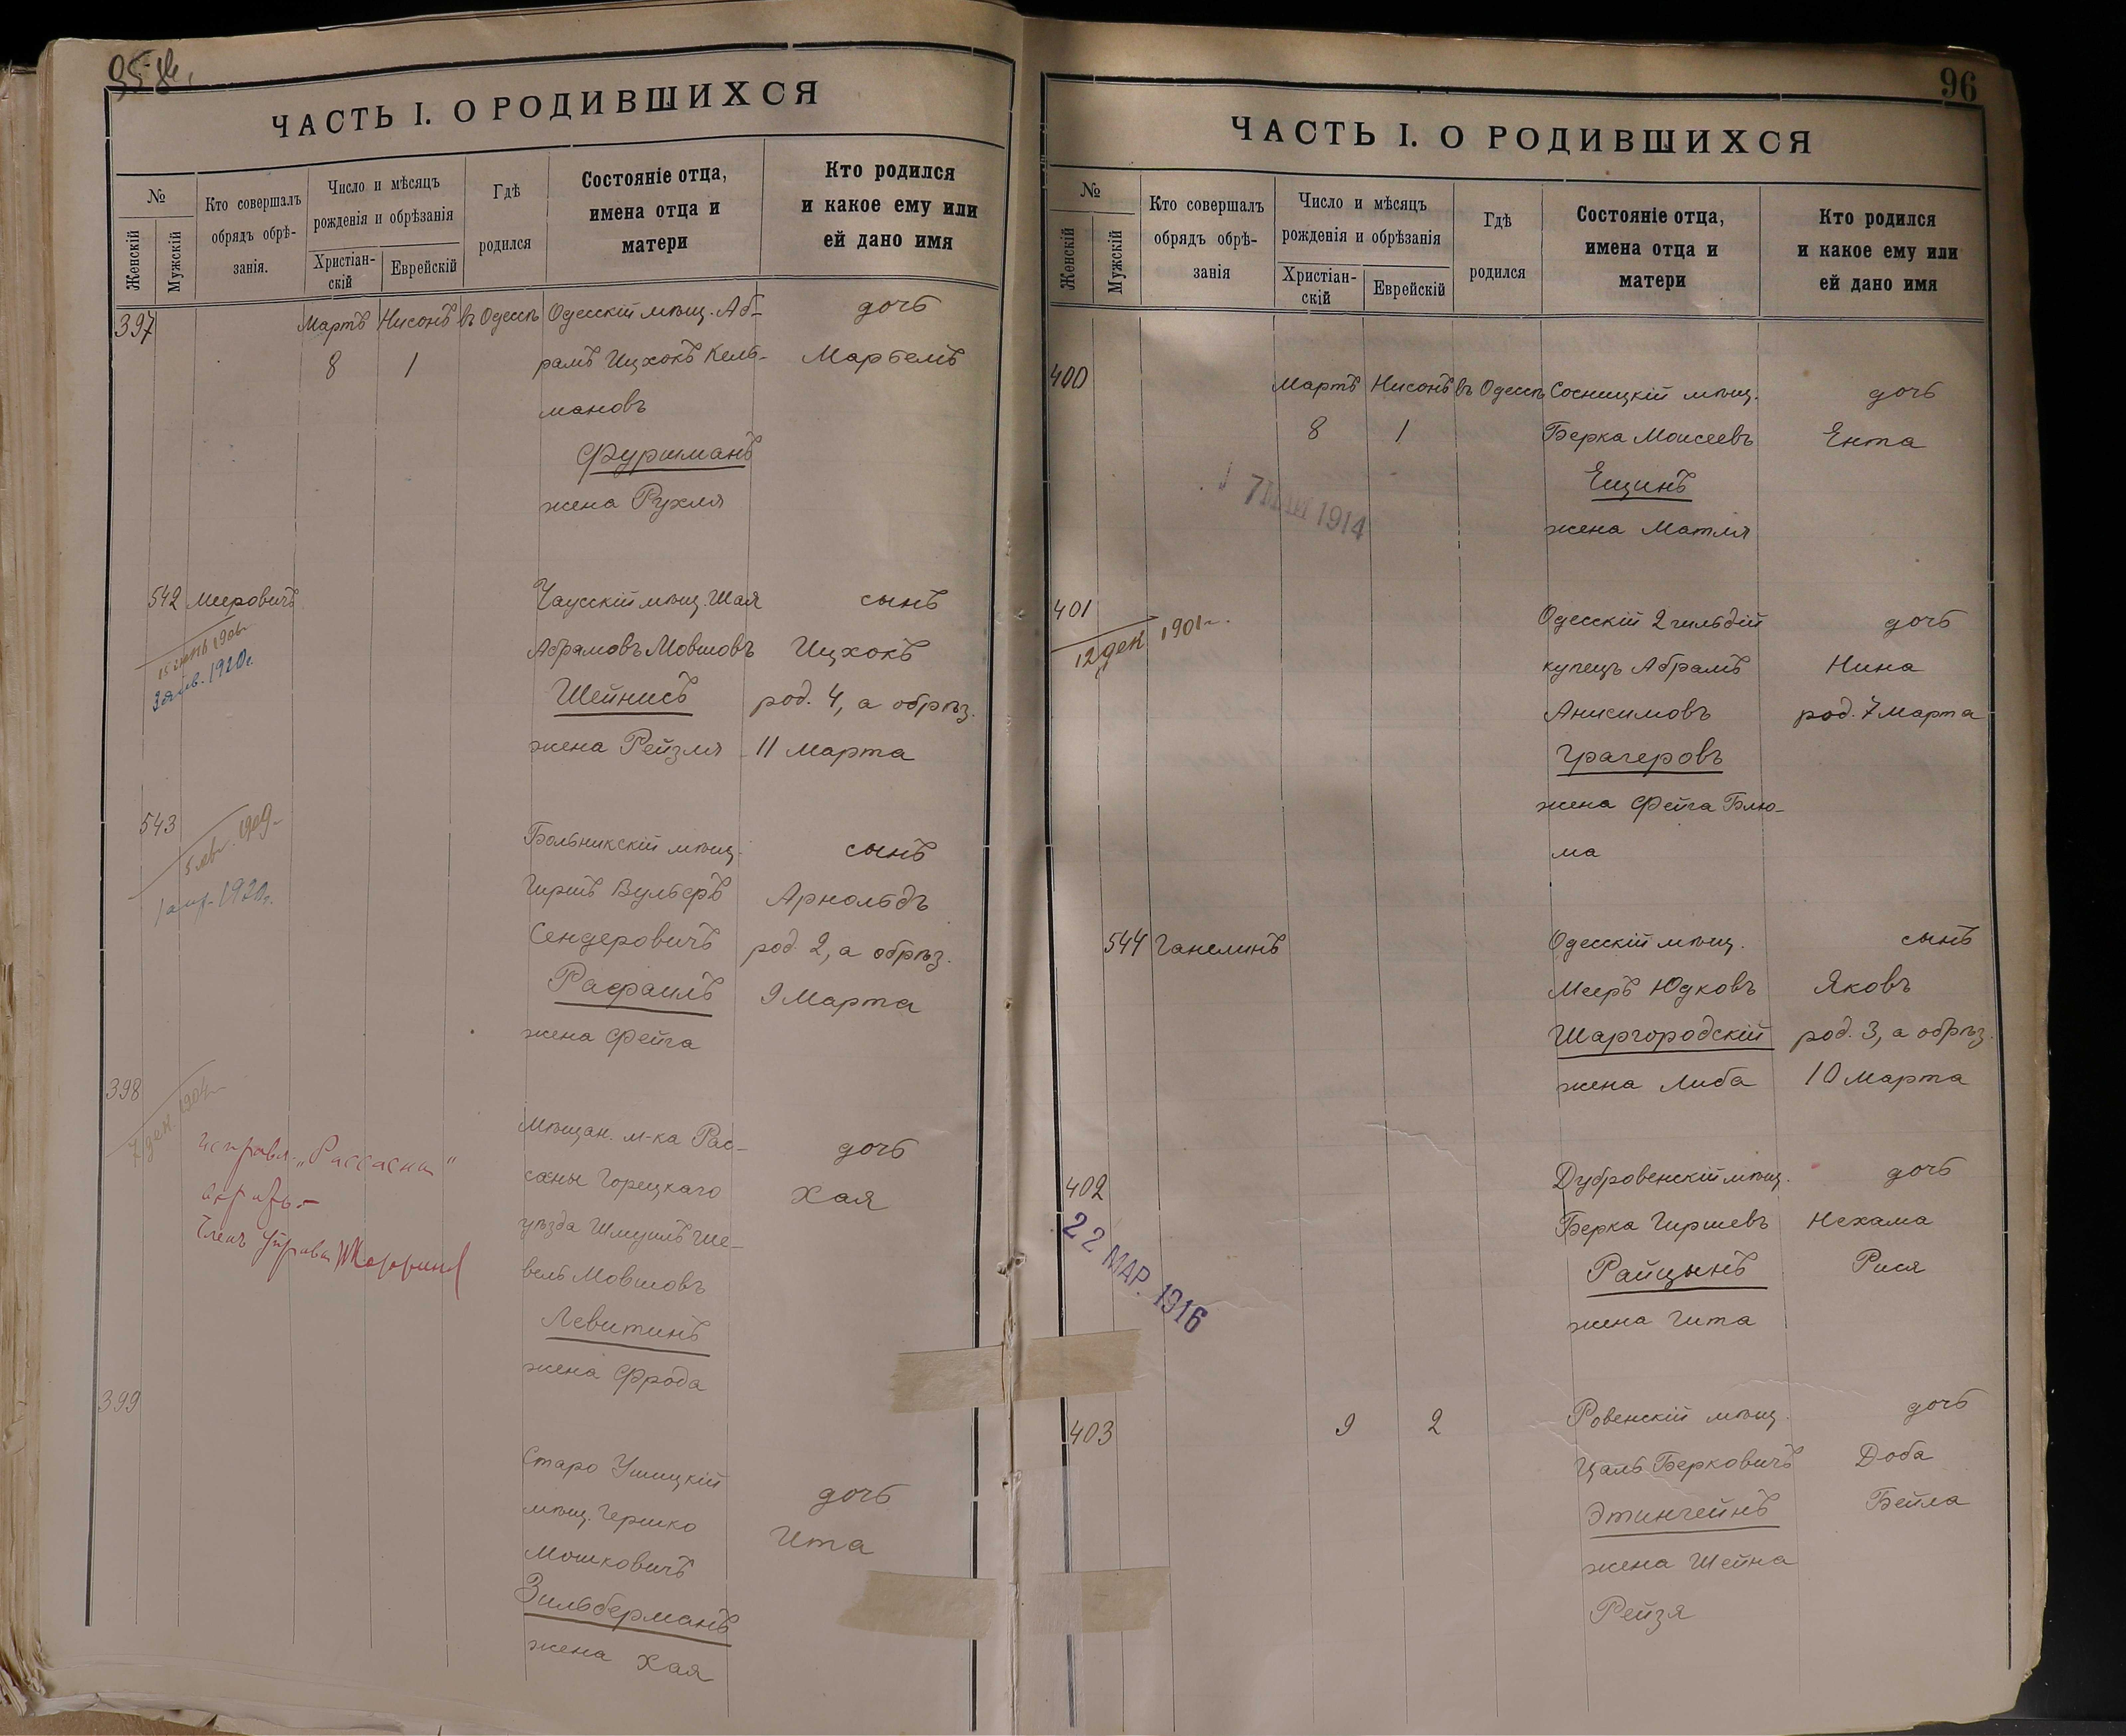 ЧАСТЬ I. О РОДИВШИХСЯ
№
Женскій
Мужскій
Кто совершалъ
обрядъ обрѣ-
занія.
Число и мѣсяцъ
рожденія и обрѣзанія
Христіан-
скій
Еврейскій
Гдѣ
родился
Состояніе отца,
имена отца и
матери
Кто родился
и какое ему или
ей дано имя
397 Мартъ Нисонъ въ Одессѣ Одесскій мѣщ. Аб- дочь
8 1 рамъ Ицхокъ Кель- Марьемъ
мановъ
Фуршманъ
жена Рухля
542 Мееровичъ Чаусскій мѣщ. Шая сынъ
Абрамовъ Мовшовъ Ицхокъ
3 янв. 1920г.
Шейнисъ род. 4, а обрѣз.
жена Рейзля 11 Марта
543 Больникскій мѣщ. сынъ
1909
Гиршъ Вульфъ Арнольдъ
1 апр. 1920г.
Сендеровичъ род. 2, а обрѣз.
Рафаилъ 9 Марта
жена Фейга
398 Мѣщан. м-ка Рас- дочь
7 дек. 1904
саны Горецкаго Хая
"Рассасны"
уѣзда Шмуилъ Ше-
вель Мовшовъ
Левитинъ
жена Фрода
399 Старо Ушицкій дочь
мѣщ. Гершко Ита
Мошковичъ
Зильберманъ
жена Хая
96
ЧАСТЬ I. О РОДИВШИХСЯ
№
Женскій
Мужскій
Кто совершалъ
обрядъ обрѣ-
занія
Число и мѣсяцъ
рожденія и обрѣзанія
Христіан-
скій
Еврейскій
Гдѣ
родился
Состояніе отца,
имена отца и
матери
Кто родился
и какое ему или
ей дано имя
400 Мартъ Нисонъ въ Одессѣ Сосницкій мѣщ. дочь
8 1 Берка Моисеевъ Ента
Ещинъ
1914
жена Матля
401 Одесскій 2 гильдій дочь
12 дек 1901г.
купецъ Абрамъ Нина
Анисимовъ род. 7 марта
Грагеровъ
жена Фейга Блю-
ма
544 Ганелинъ Одесскій мѣщ. сынъ
Мееръ Юдковъ Яковъ
Шаргородскій род. 3, а обрѣз.
жена Либа 10 Марта
402 Дубровенскій мѣщ. дочь
22 МАР. 1916
Берка Гиршевъ Нехама
Райцынъ Рися
жена Гита
403 9 2 Ровенскій мѣщ. дочь
Цаль Берковичъ Доба
Этингейнъ Бейла
жена Шейна
Рейзя